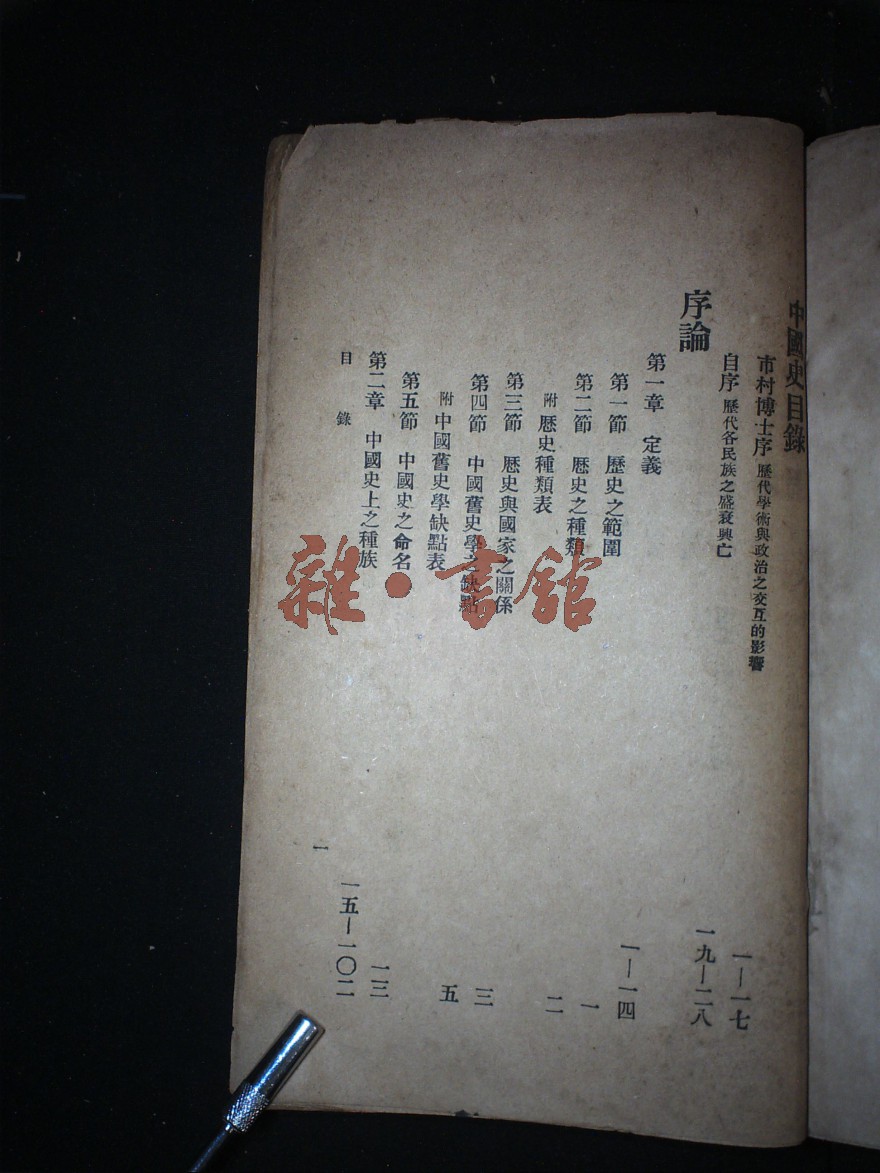 中國史目錄
市村博士序 歷代學術與政治之交互的影響 一—一七
自序 歷代各民族之盛衰興亡 一九—二八
序論
第一章 定義 一—一四
第一節 歷史之範圍 一
第二節 歷史之種類 二
附 歷史種類表
第三節 歷史與國家之關係 三
第四節 中國舊史學之缺點 五
附 中國舊史學缺點表
第五節 中國史之命名 一三
第二章 中國史上之種族 一五—一〇二
目錄 一
雜·書館